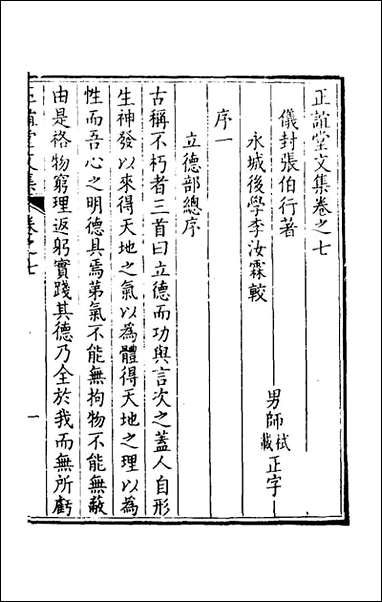 正誼堂文集卷之七
儀封張伯行著
永城後學李汝霖較
男師栻載正字
序一
立德部總序
古稱不朽者三首曰立德而功與言次之蓋人自形
生神發以來得天地之氣以為體得天地之理以為
性而吾心之明德具焉第氣不能無拘物不能無蔽
由是格物窮理返躬實踐其德乃全於我而無所虧
正誼堂文集
卷之七
一